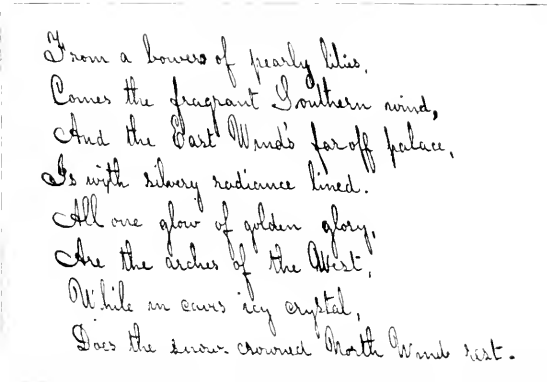 From a bowers of pearly lilies,
Comes the fragrant Southern wind,
And the East Wind's far-off palace,
Is with silvery radiance lined.
All one glow of golden glory,
Are the arches of the West,
While in caves icy crystal,
Does the snow-crowned North Wind rest.